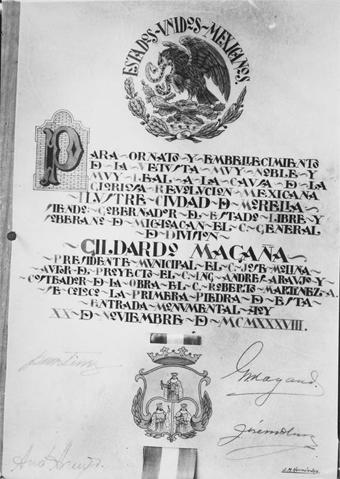 ESTADOS~UNIDOS~MEXICANOS
PARA~ORNATO~Y~EMBELLECIMIENTO
D~LA~VETUSTA~MUY~NOBLE~Y
MUY~LEAL~A~LA~CAUSA~D~LA
GLORIOSA~REVOLUCION~MEXICANA
ILUSTRE~CIUDAD~D~MORELIA
SIENDO~GOBERNADOR~D~ESTADO~LIBRE~Y
SOBERANO~D~MICHOACAN~EL~C~GENERAL
~D~DIVISION~
~GILDARDO~MAGAÑA~
~PRESIDENTE~MUNICIPAL~EL~C~JOSE~MOLINA~
~AUTOR~D~PROYECTO~EL~C~ING~ANDRES~ARAUJO~Y~
COSTEADOR~D~LA~OBRA~EL~C~ROBERTO~MARTINEZ~A.
~SE~COLOCO~LA~PRIMERA~PIEDRA~D~ESTA~
~ENTRADA~MONUMENTAL~HOY~
XX~D~NOVIEMBRE~D~MCMXXXVIII.
GMagaña